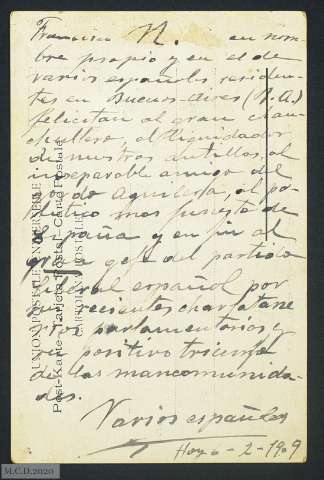 Francisco N. en nom-
bre propio y en el de
varios españoles residen-
tes en Buenos-Aires (R.A.)
felicitan al gran chan-
chullero al liquidador
de nuestras antillas, al
inseparable amigo del
de Aguilera, al po-
lítico mas funesto de
España y en fin al
gran jefe del partido
liberal español por
sus recientes charlatane-
rías parlamentarias y
su positivo triunfo
de las mancomunida-
des.
Varios españoles
Hoy 6-2-1909
UNION POSTALE UNIVERSELLE
Post-Karte - Tarjeta Postal - Carte Postale
M.C.D.2020